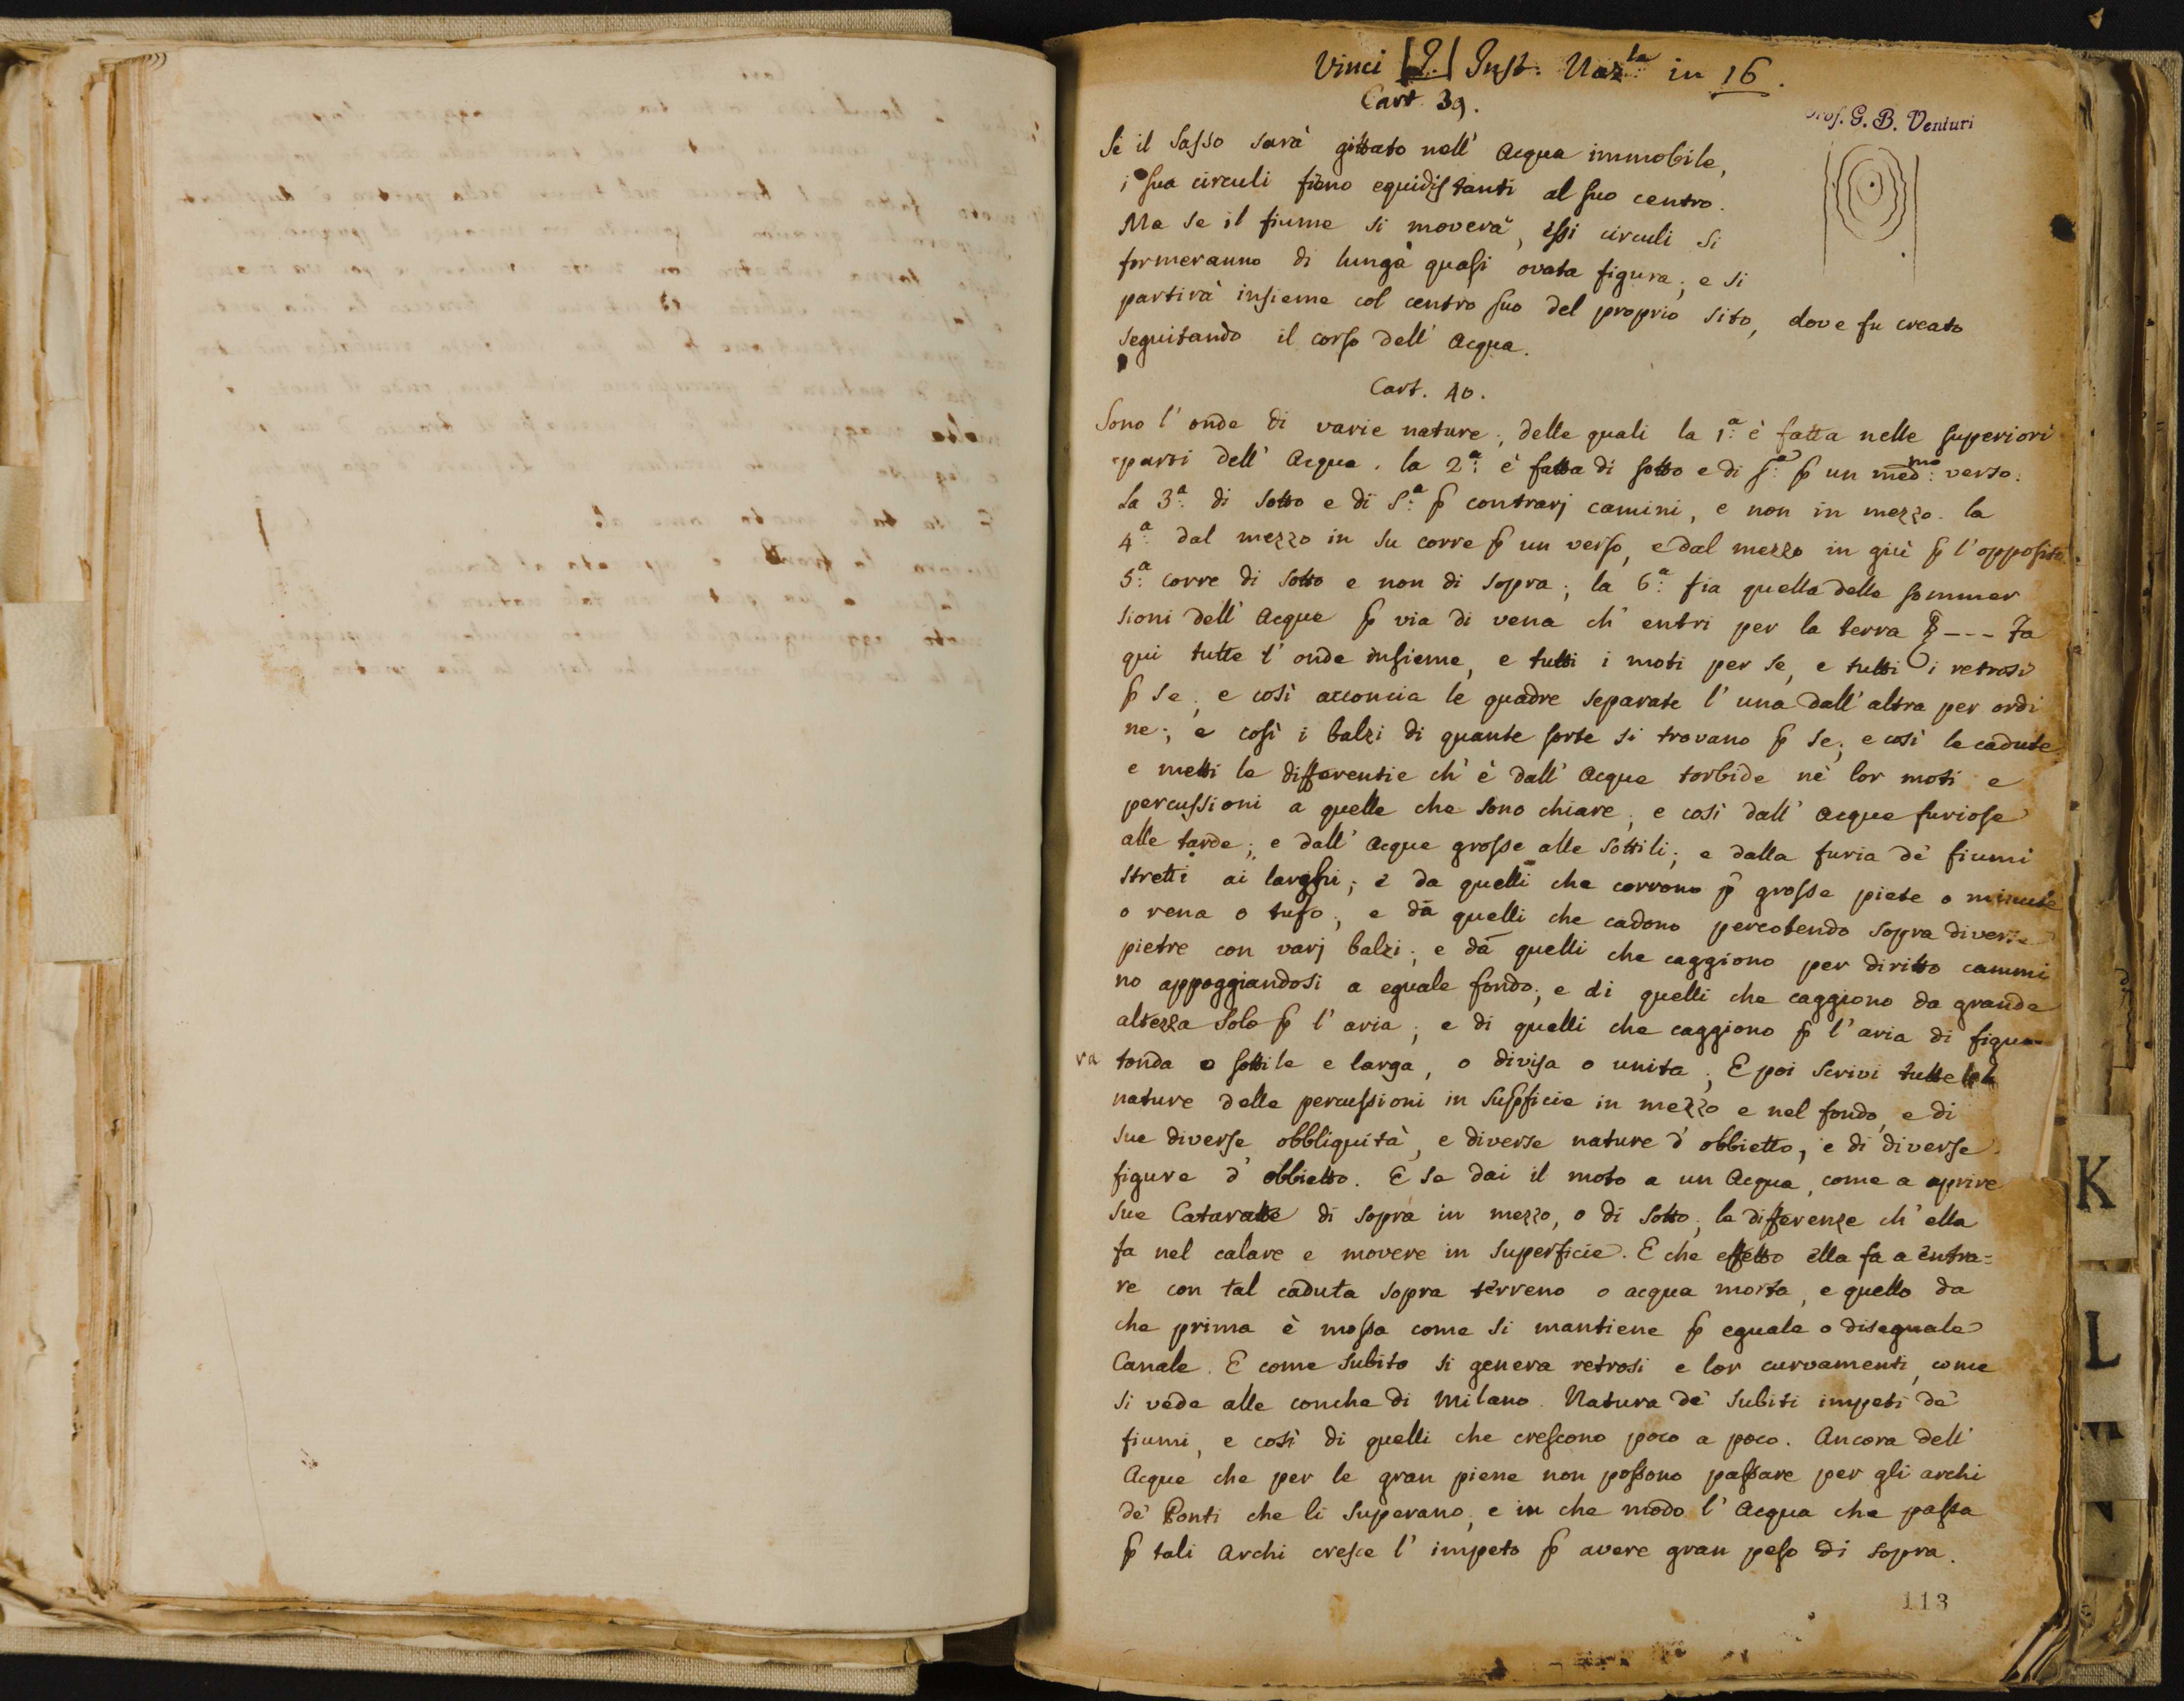 Vinci |I.| Inst. Naz.la in 16.
Cart. 39.
Prof. G. B. Venturi
Se il Sasso sarà gittato nell' Acqua immobile,
i sua circuli fieno equidistanti al suo centro.
Ma se il fiume si moverà, essi circuli si
formeranno di lunga quasi ovata figura; e si
partirà insieme col centro suo del proprio sito, dove fu creato
seguitando il corso dell' Acqua.
Cart. 40.
Sono l' onde di varie nature; delle quali la 1.a è fatta nelle superiori
parti dell' Acqua. la 2.a è fatta di sotto e di s.a ꝑ un med.mo verso.
La 3.a di sotto e di s.a ꝑ contrarj camini, e non in mezzo. la
4.a dal mezzo in su corre ꝑ un verso, e dal mezzo in giù ꝑ l'opposito.
5.a corre di sotto e non di sopra; la 6.a fia quella delle sommer
sioni dell' Acque ꝑ via di vena ch' entri per la terra --- Fa
qui tutte l' onde insieme, e tutti i moti per se, e tutti i retrosi
ꝑ se; e così acconcia le quadre separate l' una dall' altra per ordi
ne; e così i balzi di quante sorte si trovano ꝑ se; e così le cadute.
e metti le differentie ch' è dall' Acque torbide nè lor moti e
percussioni a quelle che sono chiare; e così dall' acque furiose
alle tarde; e dall' Acque grosse alle sottili; e dalla furia de' fiumi
stretti ai larghi; e da quelli che corrono ꝑ grosse piete o minute
o rena o tufo; e da quelli che cadono percotendo sopra diverse
pietre con varj balzi; e da quelli che caggiono per diritto cammi
no appoggiandosi a eguale fondo; e di quelli che caggiono da grande
altezza solo ꝑ l' aria; e di quelli che caggiono ꝑ l' aria di figu
ra tonda o sottile e larga, o divisa o unita; E poi scrivi tutte le
nature delle percussioni in suꝑficie in mezzo e nel fondo, e di
sue diverse obbliquità, e diverse nature d' obbietto, e di diverse
figure d' obbietto. E se dai il moto a un Acqua, come a aprire
sue Cataratte di sopra in mezzo, o di sotto; le differenze ch' ella
fa nel calare e movere in superficie. E che effetto ella fa a entra=
re con tal caduta sopra terreno o acqua morta, e quello da
che prima è mossa come si mantiene ꝑ eguale o diseguale
Canale. E come subito si genera retrosi e lor curvamenti, come
si vede alle conche di Milano. Natura de' subiti impeti de'
fiumi, e così di quelli che crescono poco a poco. Ancora dell'
Acque che per le gran piene non possono passare per gli archi
de' Ponti che li superano; e in che modo l' Acqua che passa
ꝑ tali Archi cresce l' impeto ꝑ avere gran peso di sopra.
113
K
L